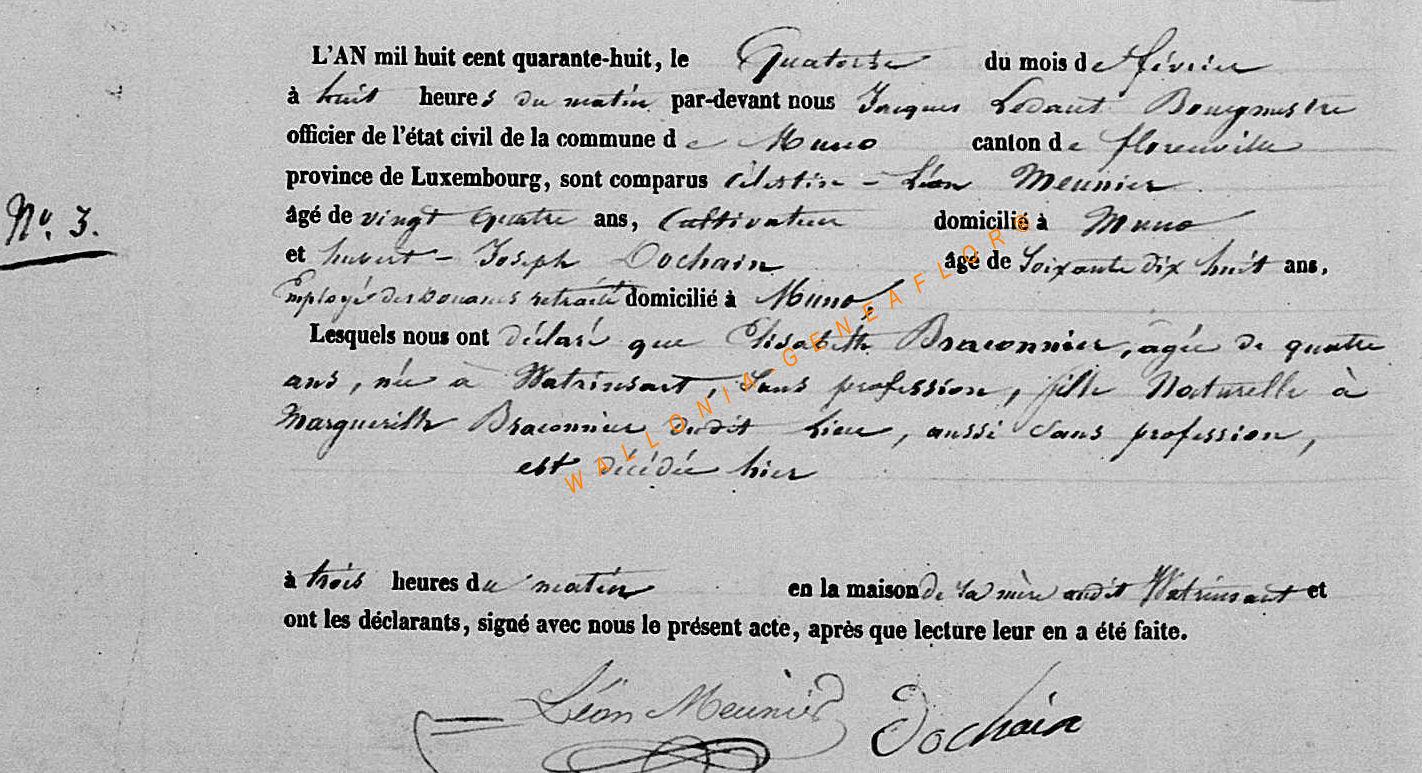 L'AN mil huit cent quarante-huit, le Quatorze du mois de février
à huit heures du matin par-devant nous Jacques Ledant Bourgmestre
officier de l'état civil de la commune de Muno canton de florenville
province de Luxembourg, sont comparus Célestin - Léon Meunier
N°. 3.
âgé de vingt quatre ans, Cultivateur domicilié à Muno
et hubert - Joseph Dochain âgé de Soixante dix huit ans,
Employé des Douanes retraité domicilié à Muno,
Lesquels nous ont déclaré que Elisabeth Braconnier, agée de quatre
ans, née à Watrinsart, Sans profession, fille Naturelle à
Marguerithe Braconnier dudit Lieu, aussi Sans profession,
est décédée hier
à trois heures du matin en la maison de sa mère audit Watrinsart et
ont les déclarants, signé avec nous le présent acte, après que lecture leur en a été faite.
Léon Meunier Dochain
WALLONIA-GENEAFLORE